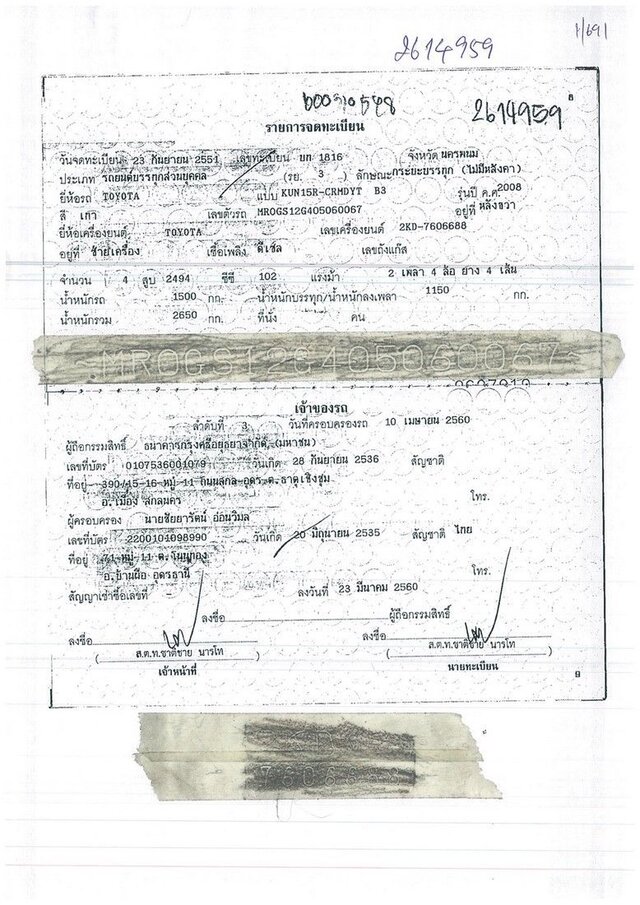 1/691
2614959
600310548
2614959
8
รายการจดทะเบียน
วันจดทะเบียน 23 กันยายน 2551 เลขทะเบียน บท 1816 จังหวัด นครพนม
ประเภท รถยนต์บรรทุกส่วนบุคคล (รย. 3 ) ลักษณะกระบะบรรทุก (ไม่มีหลังคา)
ยี่ห้อรถ TOYOTA แบบ KUN15R-CRMDYT B3 รุ่นปี ค.ศ. 2008
สี เทา เลขตัวรถ MROGS12G405060067 อยู่ที่ หลังขวา
ยี่ห้อเครื่องยนต์ TOYOTA เลขเครื่องยนต์ 2KD-7606688
อยู่ที่ ซ้ายเครื่อง เชื้อเพลิง ดีเซล เลขถังแก๊ส
จำนวน 4 สูบ 2494 ซีซี 102 แรงม้า 2 เพลา 4 ล้อ ยาง 4 เส้น
น้ำหนักรถ 1500 กก. น้ำหนักบรรทุก/น้ำหนักลงเพลา 1150 กก.
น้ำหนักรวม 2650 กก. ที่นั่ง คน
MROGS12G405060067
เจ้าของรถ
ลำดับที่ 3 วันที่ครอบครองรถ 10 เมษายน 2560
ผู้ถือกรรมสิทธิ์ ธนาคารกรุงศรีอยุธยาจำกัด (มหาชน)
เลขที่บัตร 0107536001079 วันเกิด 28 กันยายน 2536 สัญชาติ
ที่อยู่ 390/15-16 หมู่ 11 ถนนสกล-อุดร ต.ธาตุเชิงชุม
อ.เมือง สกลนคร โทร.
ผู้ครอบครอง นายชัยยารัตน์ อ่อนวิมล
เลขที่บัตร 2200101098990 วันเกิด 20 มิถุนายน 2535 สัญชาติ ไทย
ที่อยู่ 71 หมู่ 11 ต.โนนทอง
อ.บ้านผือ อุดรธานี โทร.
สัญญาเช่าซื้อเลขที่ ลงวันที่ 23 มีนาคม 2560
ลงชื่อ ผู้ถือกรรมสิทธิ์
ลงชื่อ ลงชื่อ
( ส.ต.ท.ชาติชาย นารโท ) ( ส.ต.ท.ชาติชาย นารโท )
เจ้าหน้าที่ นายทะเบียน
9